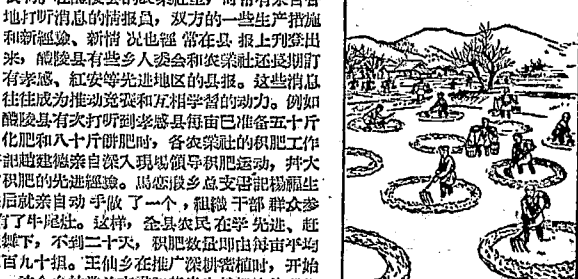 地打听消息的情报员，双方的一些生产措施
和新經驗、新情况也經常在县报上刊登出
来，醴陵县有些乡人委会和农業社还長期訂
有孝感、紅安等先进地区的县报。这些消息
往往成为推动竞赛和互相学習的动力。例如
醴陵县有次打听到孝感县每亩已准备五十斤
化肥和八十斤餅肥时，各农業社的积肥工作
記赵建德亲自深入現場領导积肥运动，幷大
积肥的先进經驗。馬恋鄉乡总支書記楊福生
后就亲自动手做了一个，組織干部群众参
有了牛尾灶。这样，全县农民在学先进、赶
舞下，不到二十天，积肥数量即由每亩平均
百九十担。王仙乡在推广深耕密植时，开始